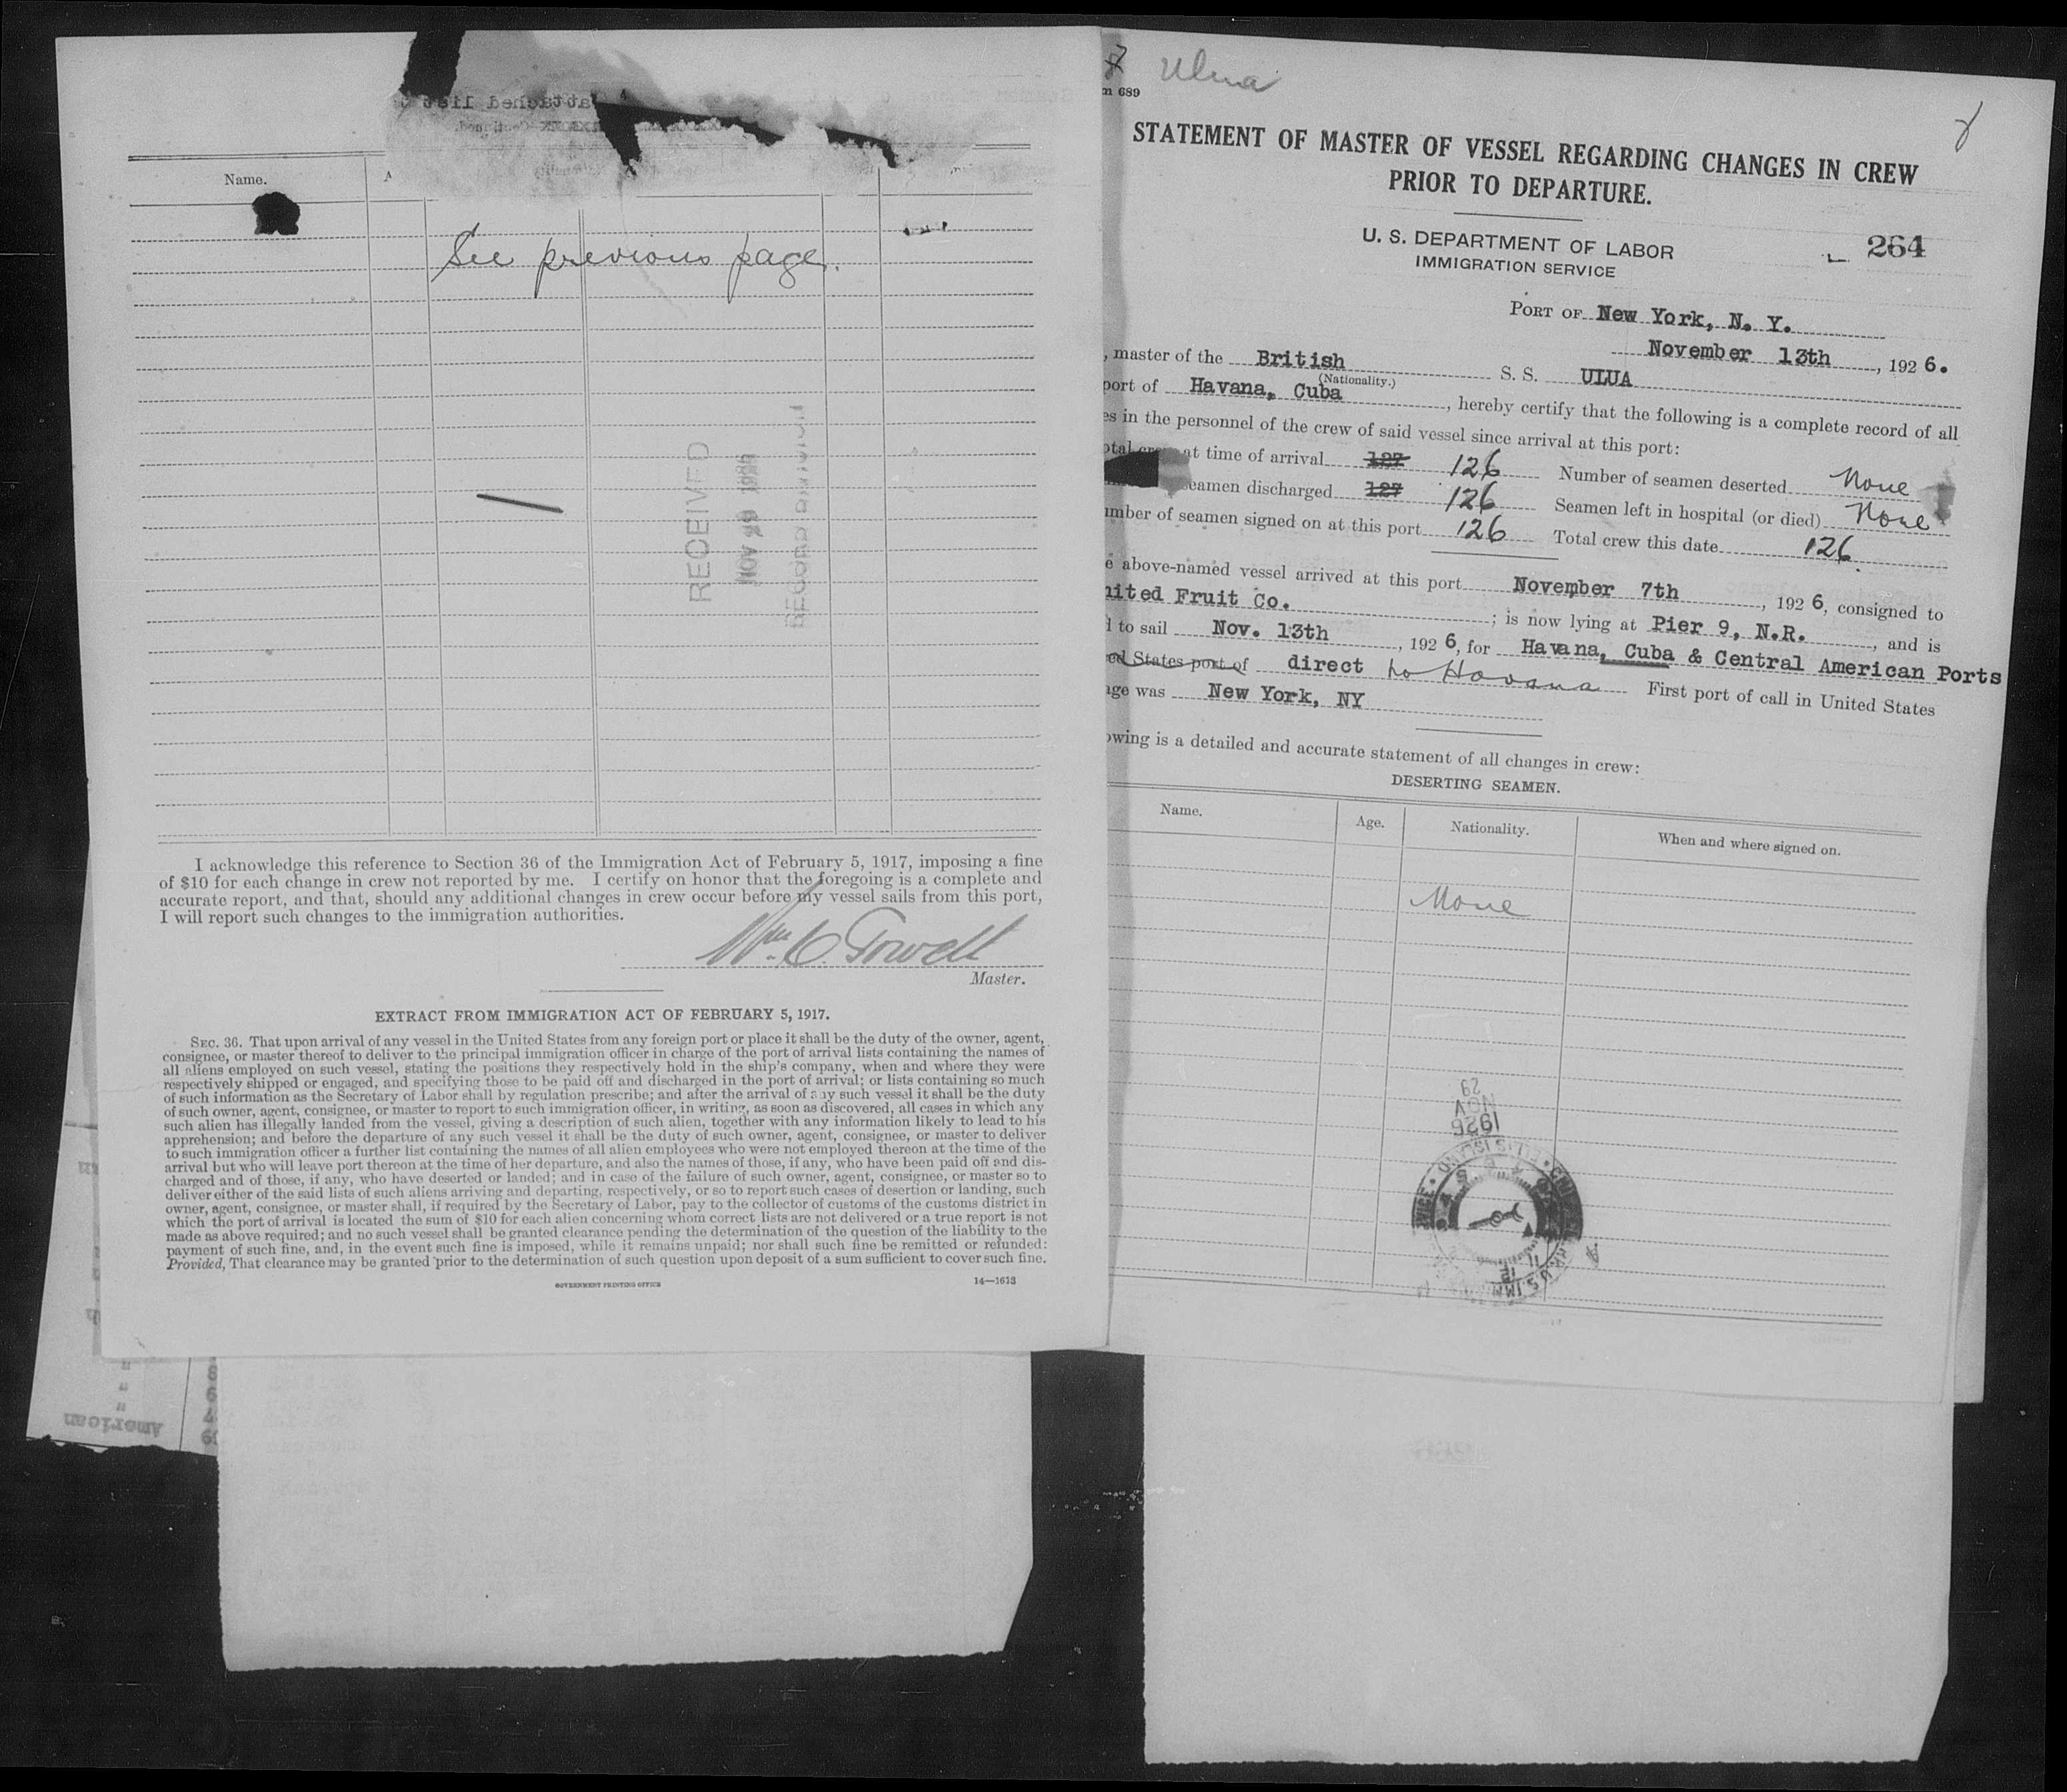 attached list
Name.
See previous page.
RECEIVED
I acknowledge this reference to Section 36 of the Immigration Act of February 5, 1917, imposing a fine
of $10 for each change in crew not reported by me. I certify on honor that the foregoing is a complete and
accurate report, and that, should any additional changes in crew occur before my vessel sails from this port,
I will report such changes to the immigration authorities.
Wm. C. Towell
Master.
EXTRACT FROM IMMIGRATION ACT OF FEBRUARY 5, 1917.
SEC. 36. That upon arrival of any vessel in the United States from any foreign port or place it shall be the duty of the owner, agent,
consignee, or master thereof to deliver to the principal immigration officer in charge of the port of arrival lists containing the names of
all aliens employed on such vessel, stating the positions they respectively hold in the ship's company, when and where they were
respectively shipped or engaged, and specifying those to be paid off and discharged in the port of arrival; or lists containing so much
of such information as the Secretary of Labor shall by regulation prescribe; and after the arrival of any such vessel it shall be the duty
of such owner, agent, consignee, or master to report to such immigration officer, in writing, as soon as discovered, all cases in which any
such alien has illegally landed from the vessel, giving a description of such alien, together with any information likely to lead to his
apprehension; and before the departure of any such vessel it shall be the duty of such owner, agent, consignee, or master to deliver
to such immigration officer a further list containing the names of all alien employees who were not employed thereon at the time of the
arrival but who will leave port thereon at the time of her departure, and also the names of those, if any, who have been paid off and dis-
charged and of those, if any, who have deserted or landed; and in case of the failure of such owner, agent, consignee, or master so to
deliver either of the said lists of such aliens arriving and departing, respectively, or so to report such cases of desertion or landing, such
owner, agent, consignee, or master shall, if required by the Secretary of Labor, pay to the collector of customs of the customs district in
which the port of arrival is located the sum of $10 for each alien concerning whom correct lists are not delivered or a true report is not
made as above required; and no such vessel shall be granted clearance pending the determination of the question of the liability to the
payment of such fine, and, in the event such fine is imposed, while it remains unpaid; nor shall such fine be remitted or refunded:
Provided, That clearance may be granted prior to the determination of such question upon deposit of a sum sufficient to cover such fine.
GOVERNMENT PRINTING OFFICE 14—1613
American
Ulua
m 689
STATEMENT OF MASTER OF VESSEL REGARDING CHANGES IN CREW
PRIOR TO DEPARTURE.
U. S. DEPARTMENT OF LABOR
IMMIGRATION SERVICE
264
PORT OF New York, N. Y.
November 13th, 1926.
, master of the British S. S. ULUA
(Nationality.)
port of Havana, Cuba, hereby certify that the following is a complete record of all
es in the personnel of the crew of said vessel since arrival at this port:
otal crew at time of arrival 127 126 Number of seamen deserted None
seamen discharged 127 126 Seamen left in hospital (or died) None
umber of seamen signed on at this port 126 Total crew this date 126
e above-named vessel arrived at this port November 7th, 1926, consigned to
nited Fruit Co.; is now lying at Pier 9, N.R., and is
d to sail Nov. 13th, 1926, for Havana, Cuba & Central American Ports
ed States port of direct to Havana First port of call in United States
age was New York, NY
owing is a detailed and accurate statement of all changes in crew:
DESERTING SEAMEN.
Name. Age. Nationality. When and where signed on.
None
29
NOV
1926